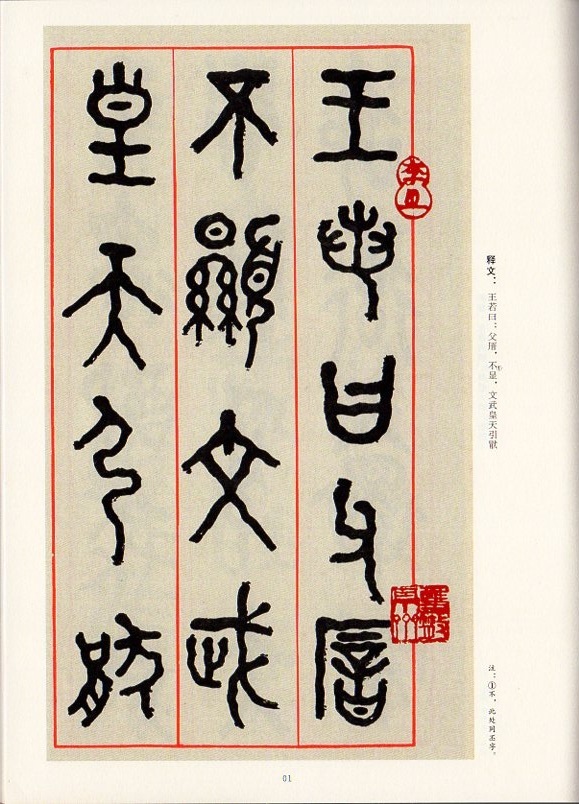 释文：王若曰：父㕌，不①显，文武皇天引猒
注：①不，此处同丕字。
王若曰父㕌
不顯文武
皇天引猒
01